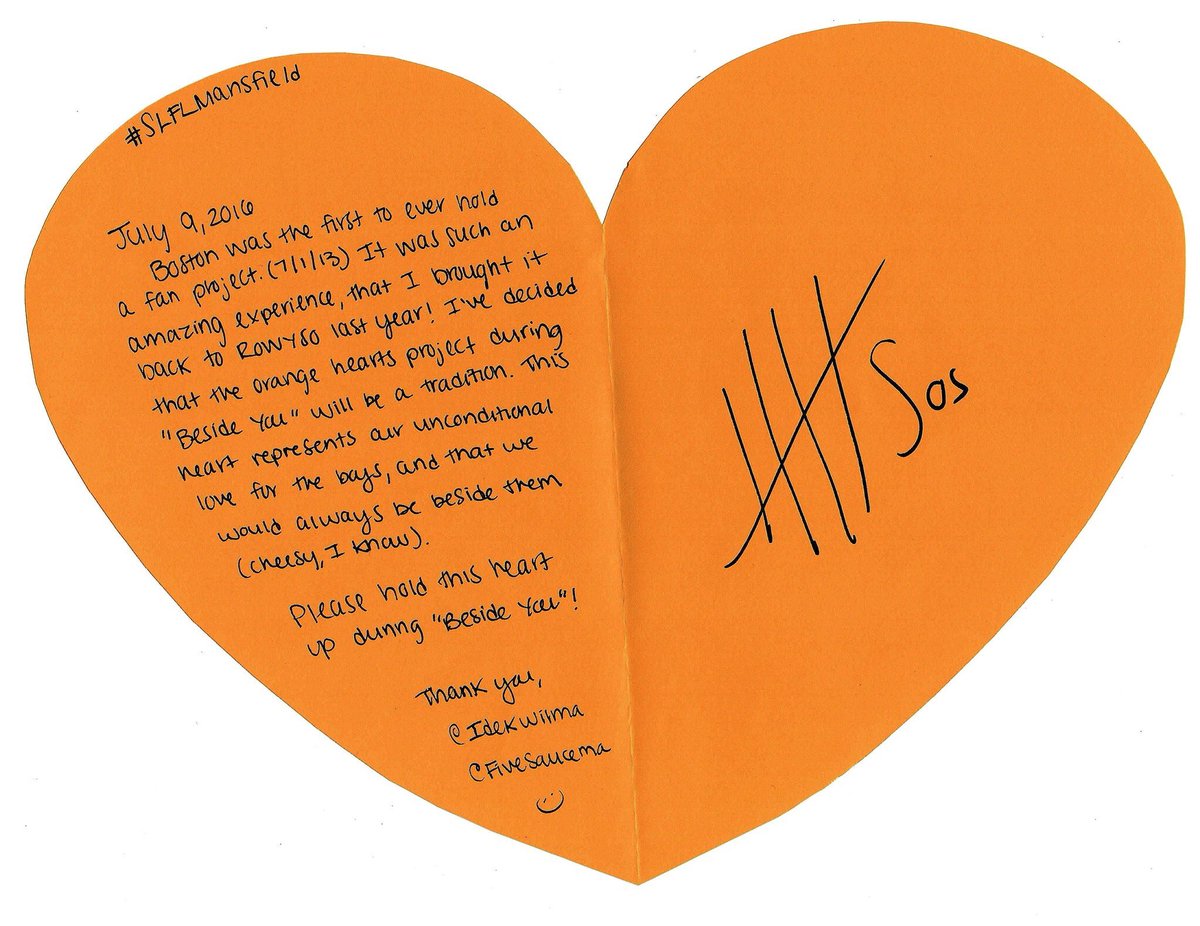 #SLFLMansfield
July 9, 2016
Boston was the first to ever hold
a fan project. (7/1/13) It was such an
amazing experience, that I brought it
back to ROWYSO last year! I've decided
that the orange hearts project during
"Beside You" will be a tradition. This
heart represents our unconditional
love for the boys, and that we
would always be beside them
(cheesy, I know).
Please hold this heart
up during "Beside You"!
Thank you,
@Idekwilma
@FiveSaucema
Sos